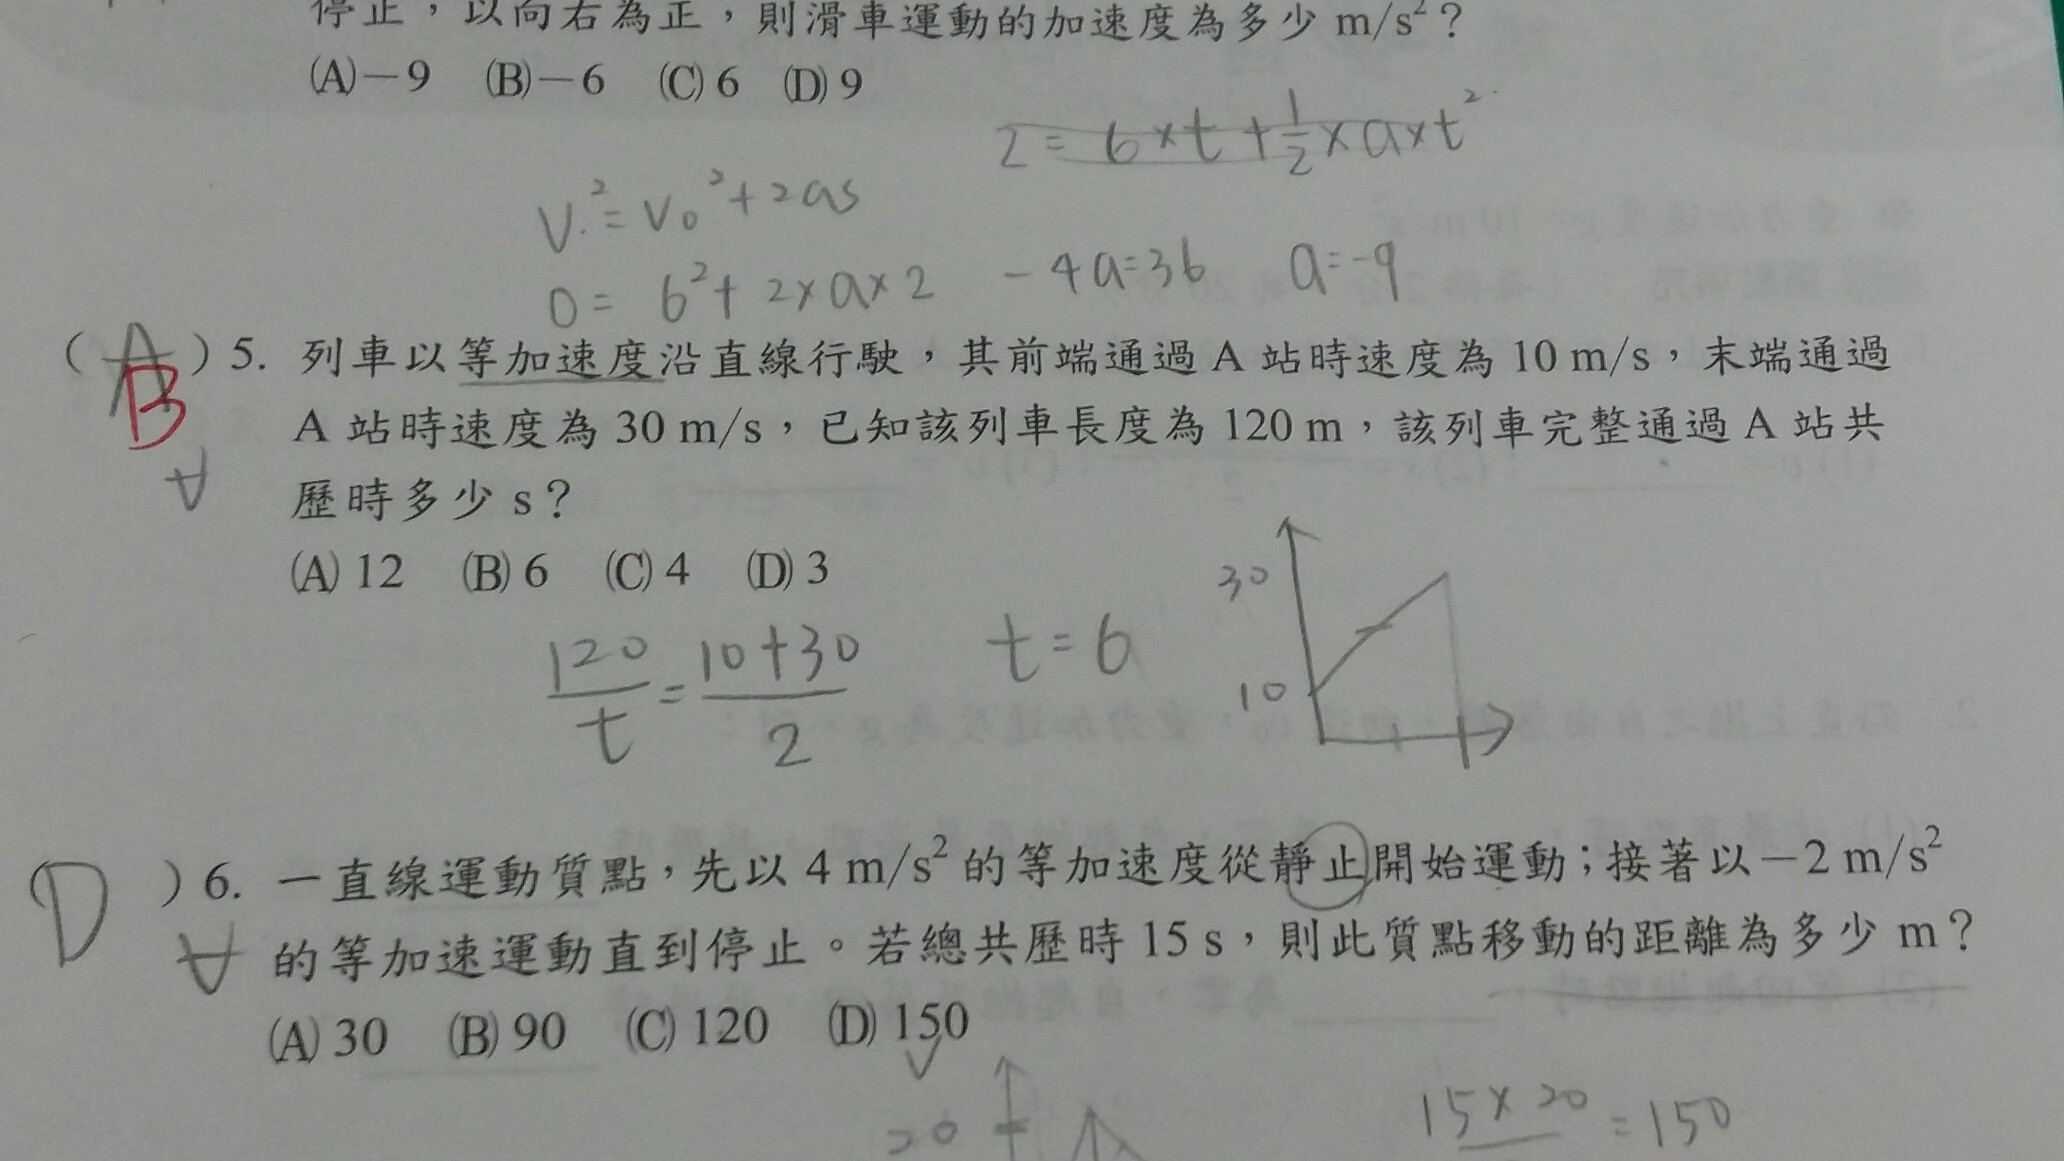 停止，以向右為正，則滑車運動的加速度為多少 m/s²？
(A)－9 (B)－6 (C) 6 (D) 9
2 = 6×t + 1/2×a×t²
V² = V₀² + 2as
0 = 6² + 2×a×2 －4a=36 a=-9
( A B ) 5. 列車以等加速度沿直線行駛，其前端通過 A 站時速度為 10 m/s，末端通過
A 站時速度為 30 m/s，已知該列車長度為 120 m，該列車完整通過 A 站共
歷時多少 s？
(A) 12 (B) 6 (C) 4 (D) 3
120/t = (10+30)/2 t=6
30
10
D ) 6. 一直線運動質點，先以 4 m/s² 的等加速度從靜止開始運動；接著以－2 m/s²
的等加速運動直到停止。若總共歷時 15 s，則此質點移動的距離為多少 m？
(A) 30 (B) 90 (C) 120 (D) 150
20
15×20 = 150